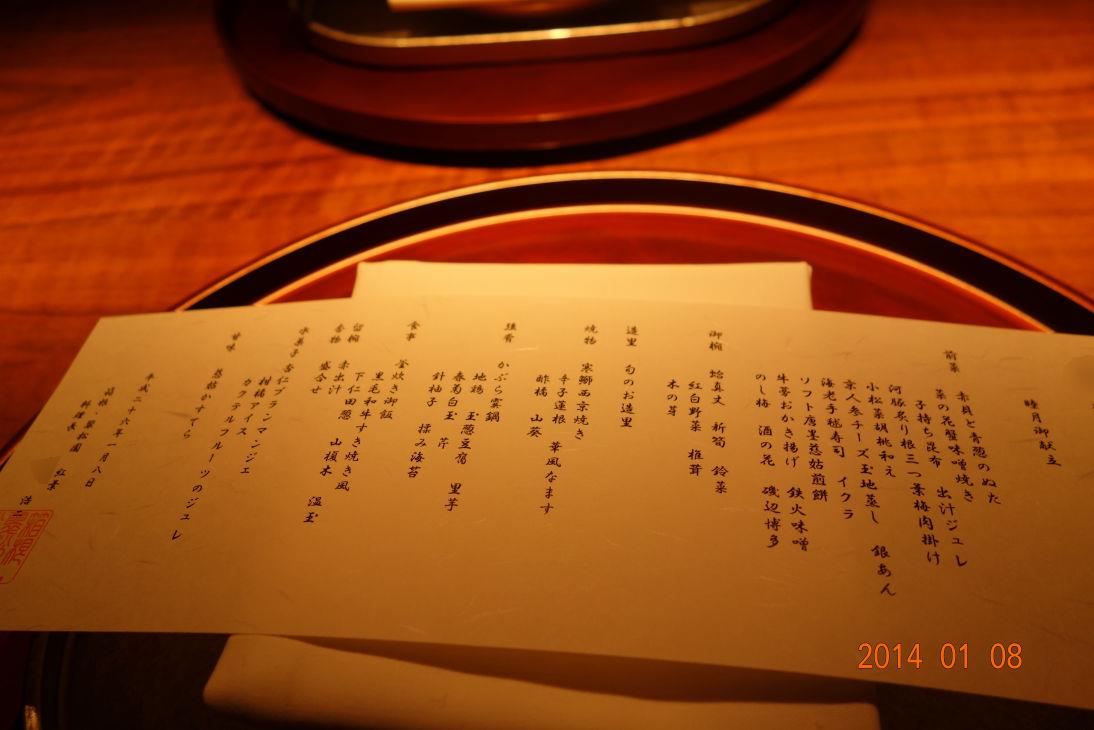 睦月御献立
前菜　赤貝と青葱のぬた
菜の花蟹味噌焼き
子持ち昆布　出汁ジュレ
河豚炙り根三つ葉梅肉掛け
小松菜胡桃和え
京人参チーズ玉地蒸し　銀あん
海老手毬寿司　イクラ
ソフト唐墨慈姑煎餅
牛蒡おかき揚げ　鉄火味噌
のし梅　酒の花　磯辺博多
御椀　蛤真丈　新筍　鈴菜
紅白野菜　椎茸
木の芽
造里　旬のお造里
焼物　寒鰤西京焼き
辛子蓮根　華風なます
酢橘　山葵
強肴　かぶら雲鍋
地鶏　玉葱豆腐　里芋
春菊白玉　芹
針柚子　揉み海苔
食事　釜炊き御飯
黒毛和牛すき焼き風
下仁田葱　山榎木　温玉
留椀　赤出汁
香物　盛合せ
水菓子　杏仁ブランマンジェ
柑橘アイス
カクテルフルーツのジュレ
甘味　慈姑かすてら
平成二十六年一月八日
箱根・翠松園
料理長　浩二
2014 01 08